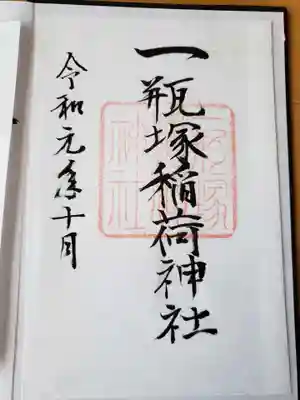 一瓶塚稲荷神社
令和元年十月